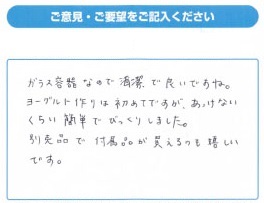 ご意見・ご要望をご記入ください
ガラス容器なので清潔で良いですね。
ヨーグルト作りは初めてですが、あっけない
くらい簡単でびっくりしました。
別売品で付属品が買えるのも嬉しい
です。